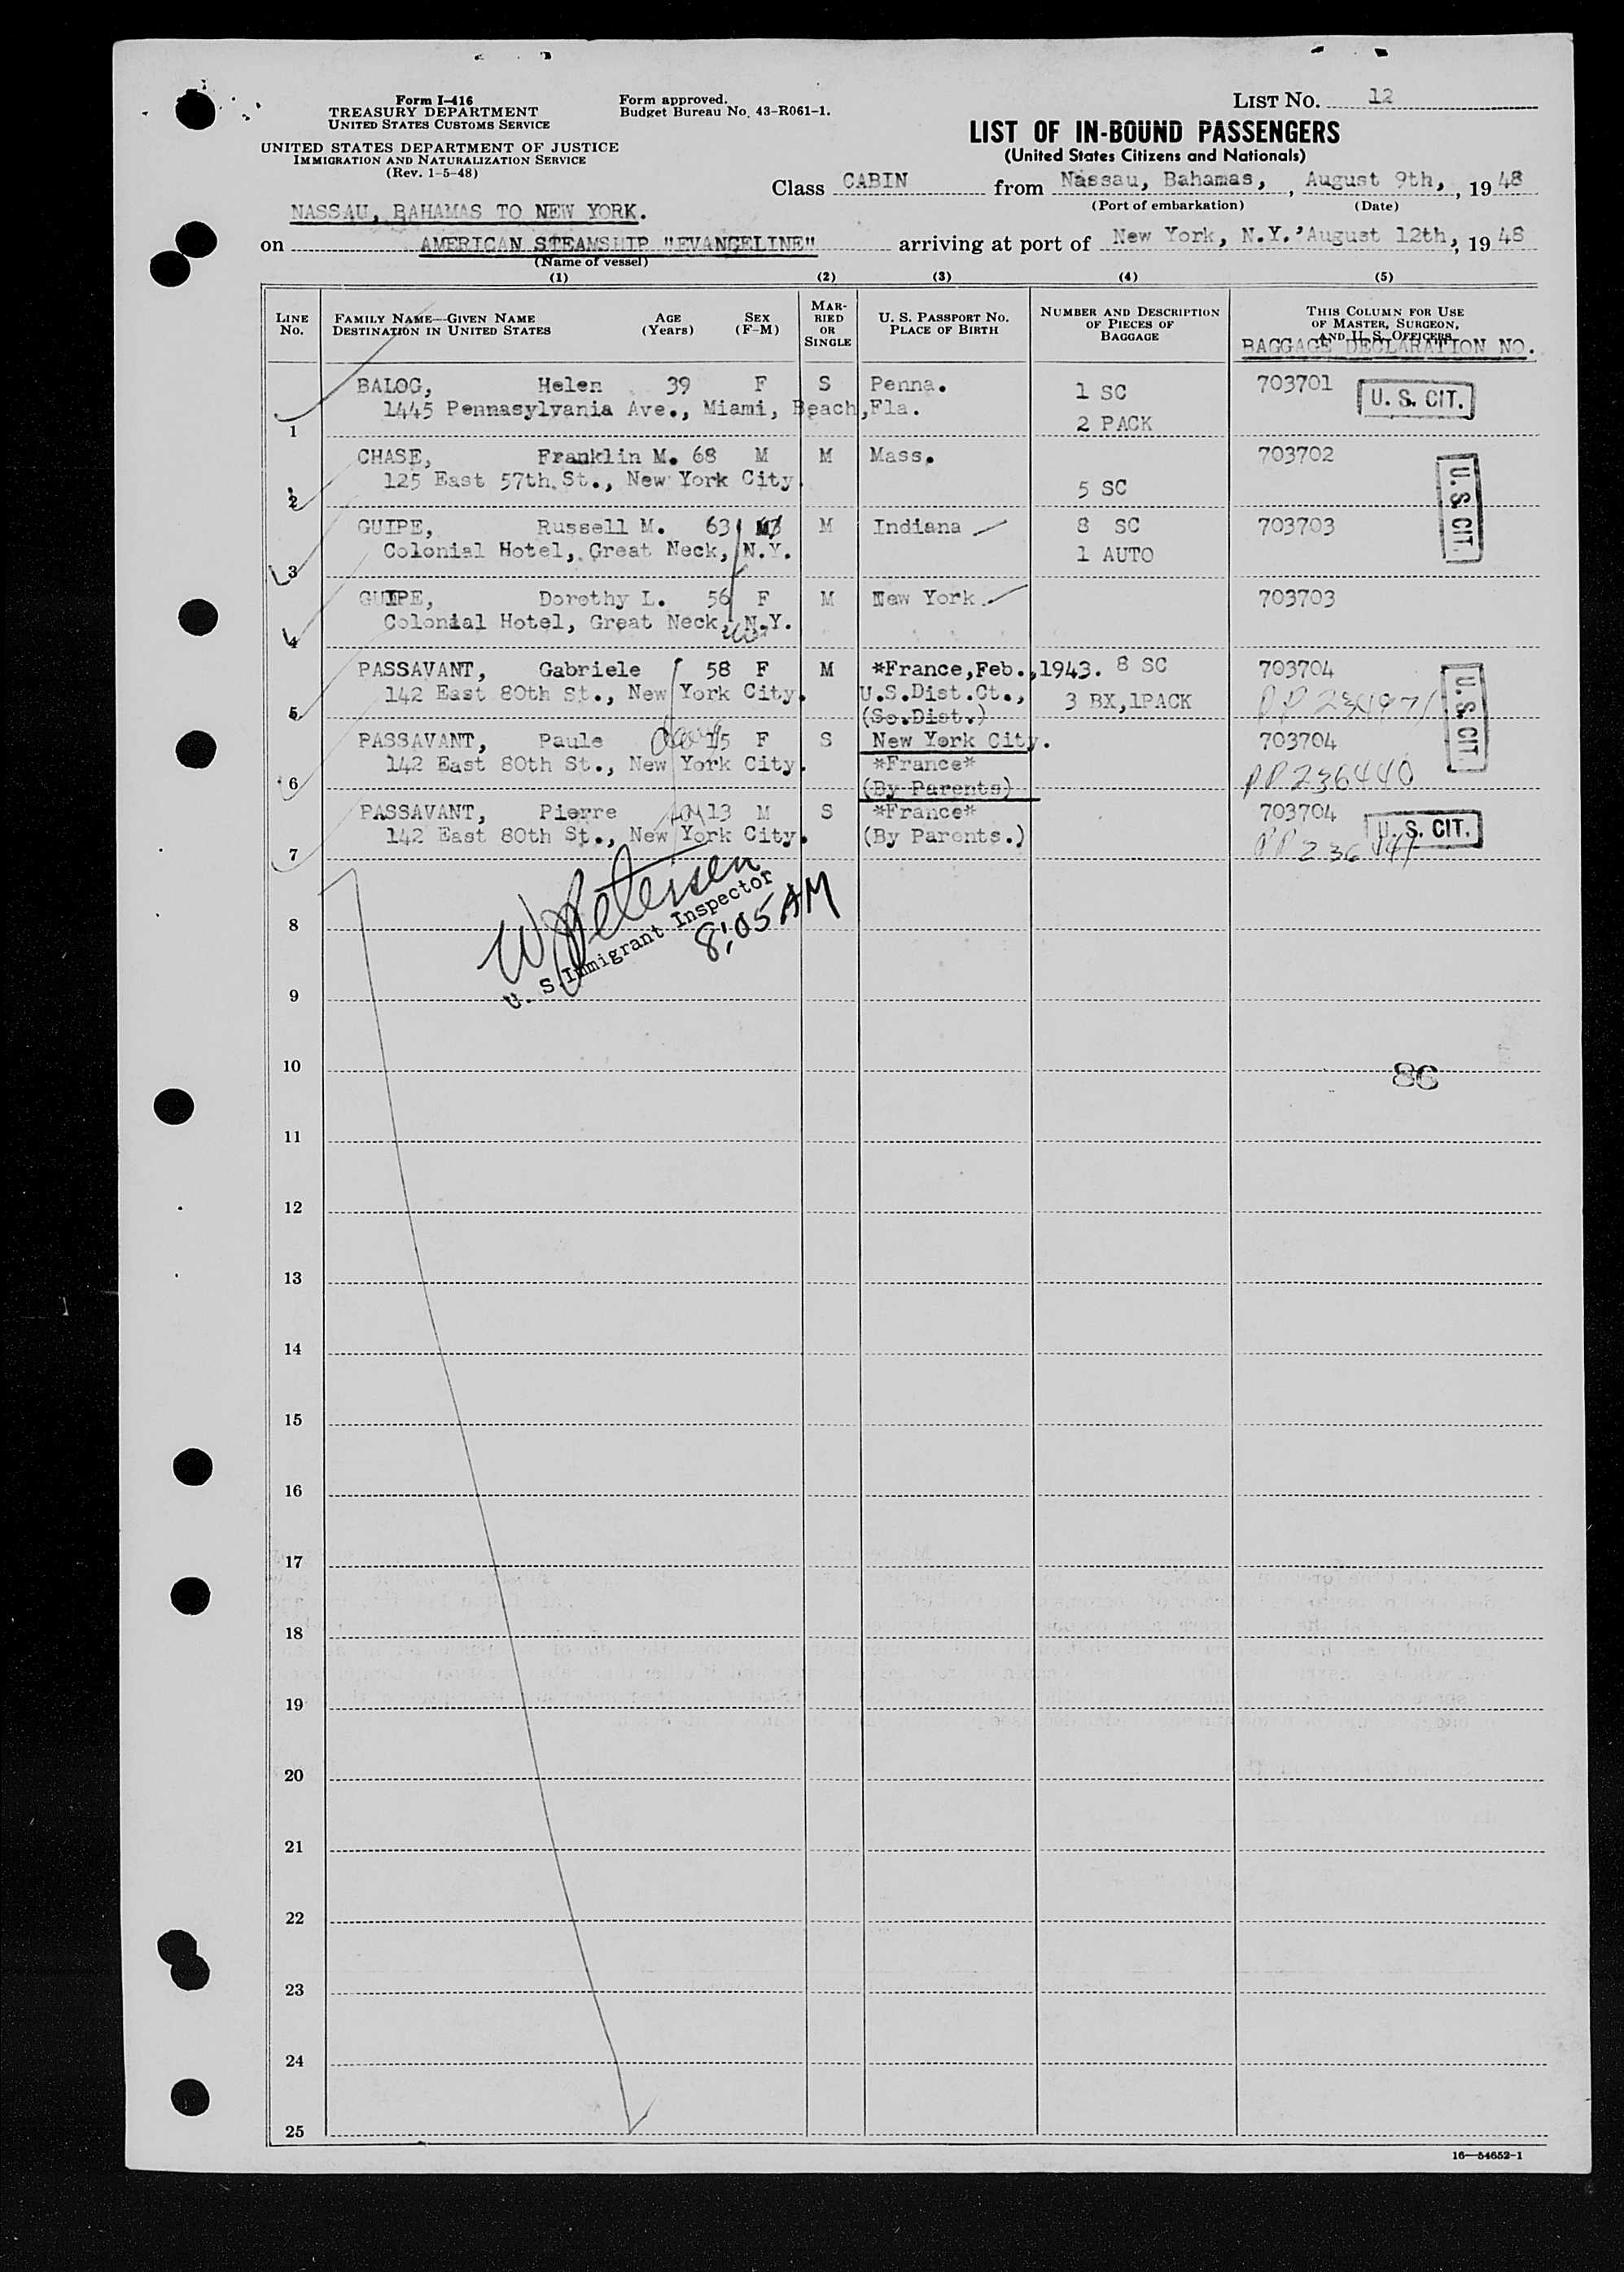 Form I-416
TREASURY DEPARTMENT
UNITED STATES CUSTOMS SERVICE
UNITED STATES DEPARTMENT OF JUSTICE
IMMIGRATION AND NATURALIZATION SERVICE
(Rev. 1-5-48)
Form approved.
Budget Bureau No. 43-R061-1.
LIST No. 12
LIST OF IN-BOUND PASSENGERS
(United States Citizens and Nationals)
Class CABIN from Nassau, Bahamas, , August 9th, , 19 48
(Port of embarkation) (Date)
NASSAU, BAHAMAS TO NEW YORK.
on AMERICAN STEAMSHIP "EVANGELINE" arriving at port of New York, N.Y.,August 12th, , 19 48
(Name of vessel)
(1) (2) (3) (4) (5)
LINE No. FAMILY NAME—GIVEN NAME DESTINATION IN UNITED STATES AGE (Years) SEX (F-M) MARRIED OR SINGLE U. S. PASSPORT No. PLACE OF BIRTH NUMBER AND DESCRIPTION OF PIECES OF BAGGAGE THIS COLUMN FOR USE OF MASTER, SURGEON, AND U. S. OFFICERS
BAGGAGE DECLARATION NO.
BALOG, Helen 39 F S Penna. 1 SC 703701 U. S. CIT.
1445 Pennasylvania Ave., Miami, Beach,Fla.
1 2 PACK
CHASE, Franklin M. 68 M M Mass. 703702
125 East 57th.St., New York City.
2 5 SC U. S. CIT.
GUIPE, Russell M. 63 M Indiana 8 SC 703703
Colonial Hotel, Great Neck, N.Y. 1 AUTO
3
GUIPE, Dorothy L. 56 F M New York. 703703
Colonial Hotel, Great Neck, N.Y.
4
PASSAVANT, Gabriele 58 F M *France,Feb.,1943. 8 SC 703704
142 East 80th St., New York City. U.S.Dist.Ct., 3 BX,1PACK U.S. CIT.
5 (So.Dist.)
PASSAVANT, Paule 15 F S New York City. 703704
142 East 80th St., New York City. *France*
6 (By Parents) PP 236440
PASSAVANT, Pierre 13 M S *France* 703704
142 East 80th St., New York City. (By Parents.) U. S. CIT.
7
W Petersen
U. S. Immigrant Inspector
8:05 AM
8
9
10
86
11
12
13
14
15
16
17
18
19
20
21
22
23
24
25
16—54652-1